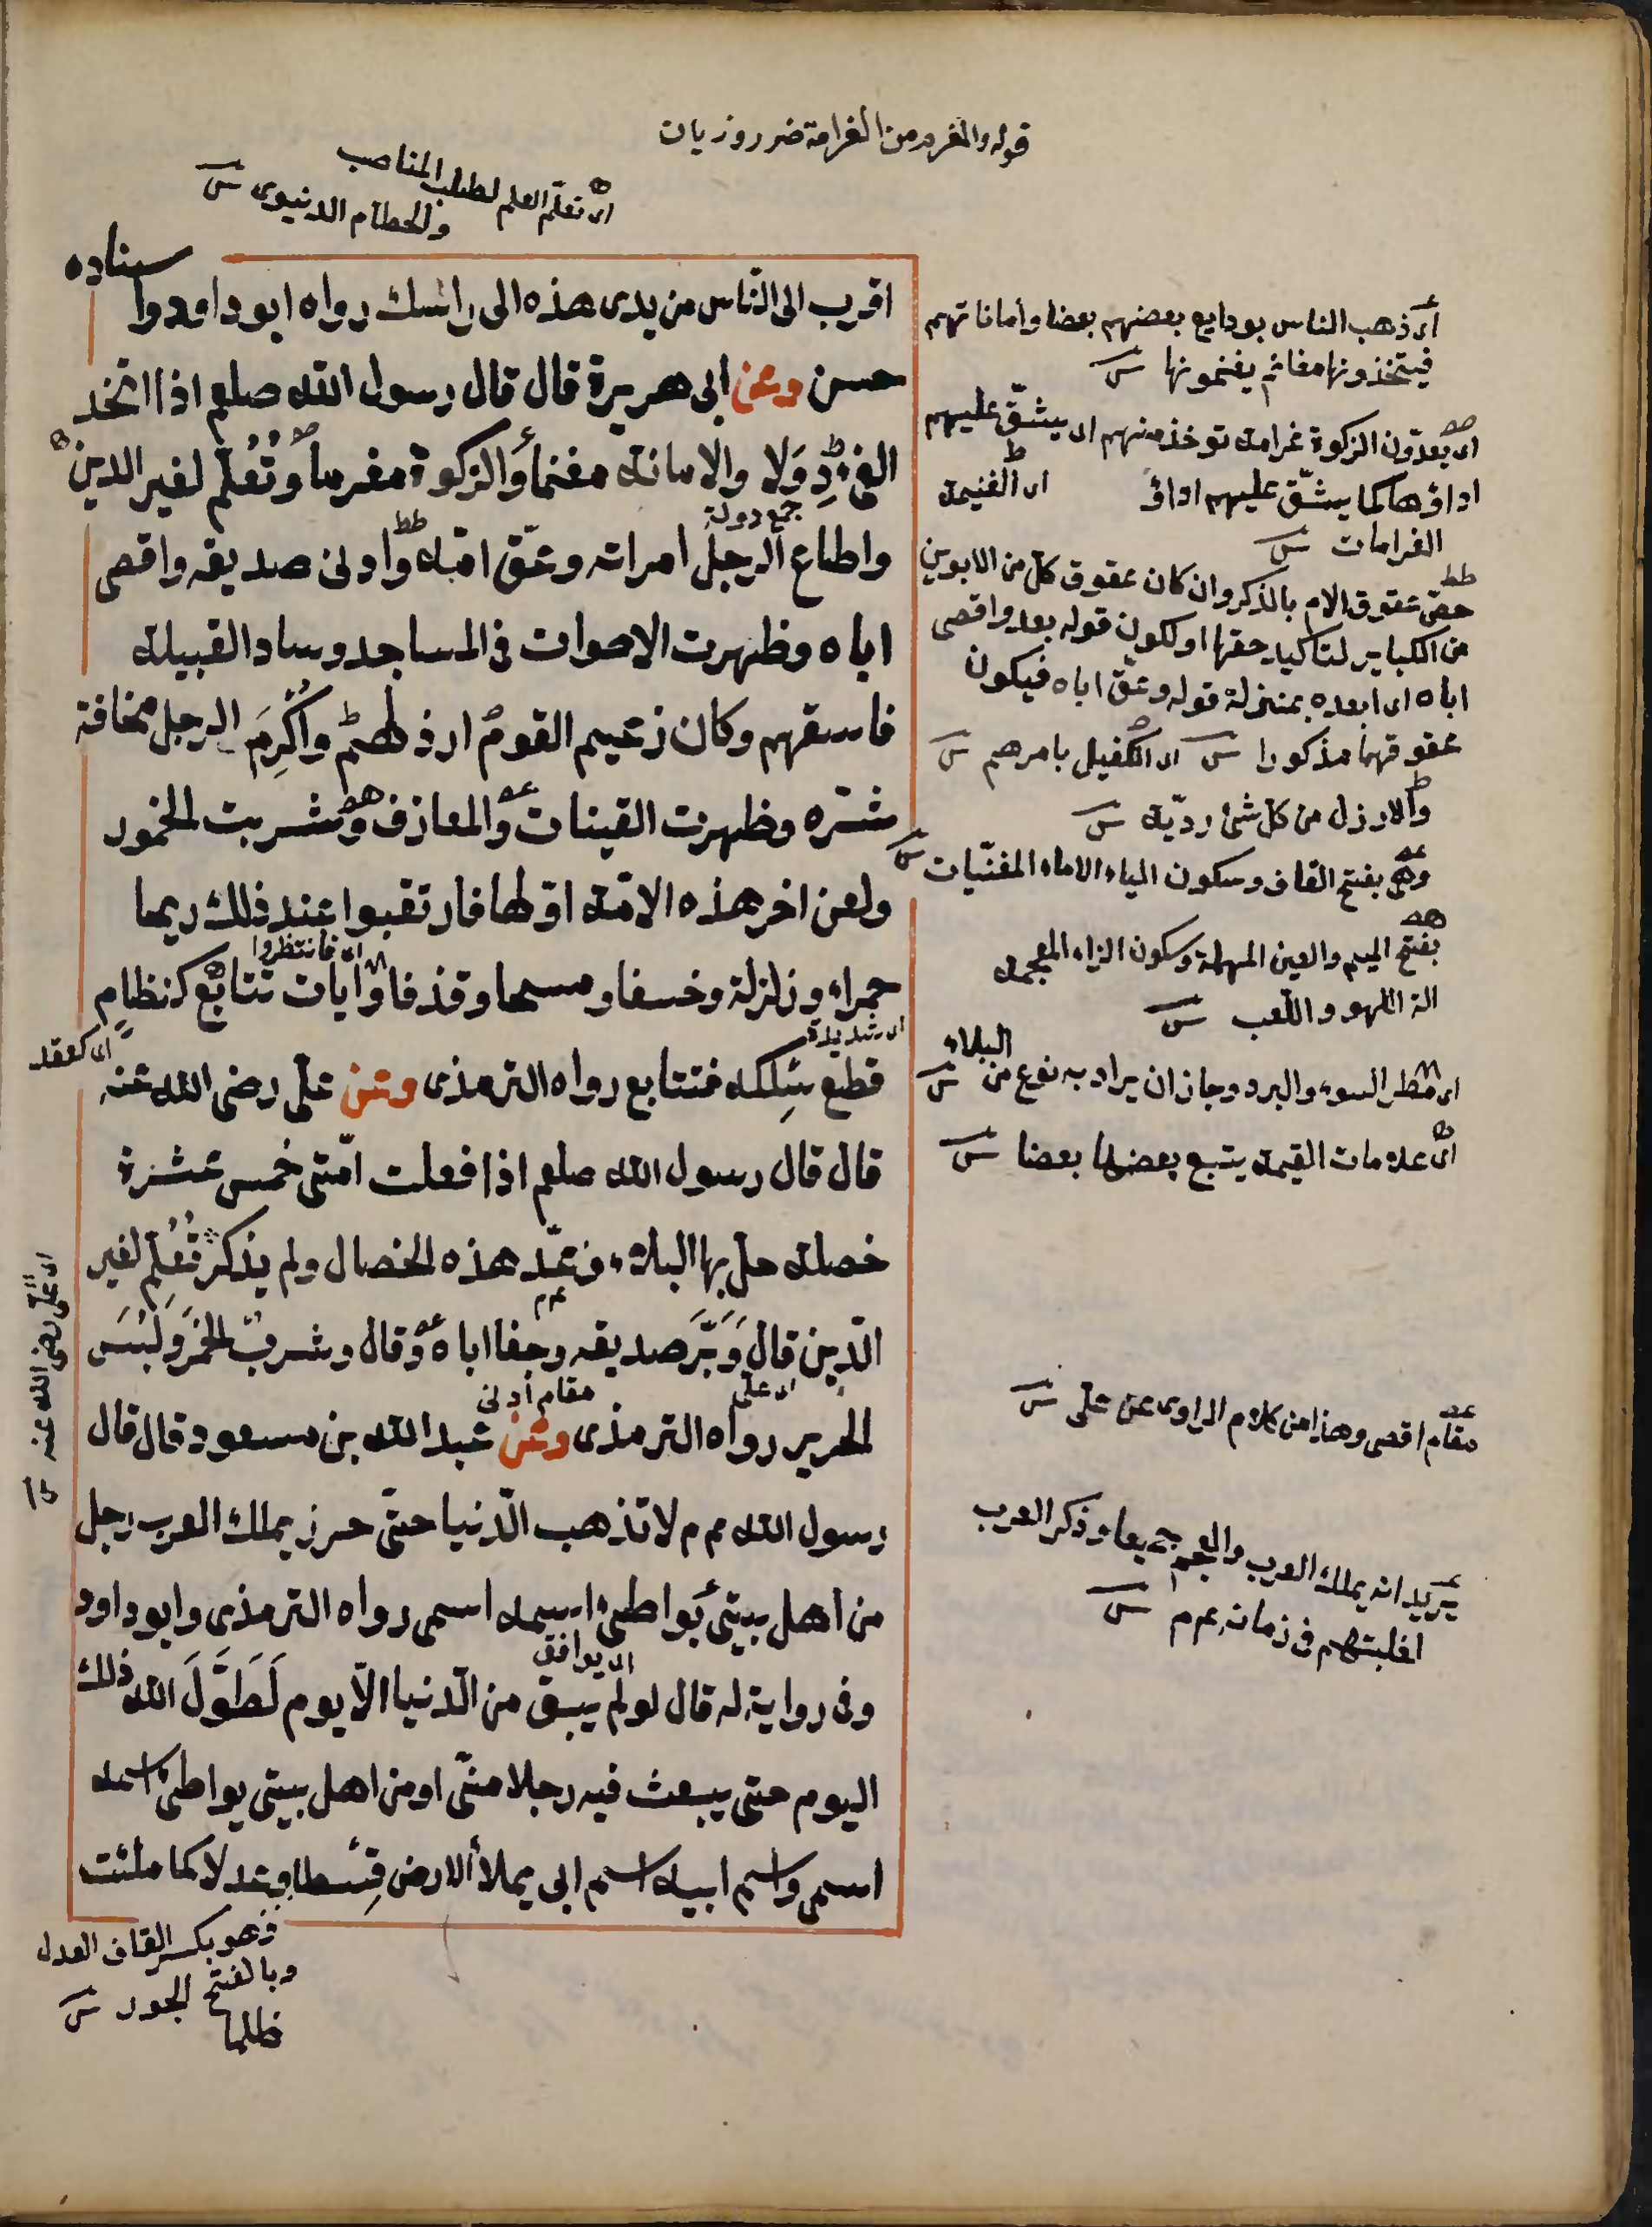 قوله والمغرم من الغرامة ضرر وزيان
ای تعلّم العلم لطلب المناصب
والحطام الدنيوى
سناده
اقرب الى النّاس من يدى هذه الى راسك رواه ابو داود وا
حسن وعن ابى هريرة قال قال رسول الله صلعم اذا اتخذ
الفئ دِوَلا والامانة مغنما والزكوة مغرما وتُعُلّم لغير الدين
جمع دولة
واطاع الرجل امراته وعقّ امّه وادنى صديقه واقصى
اباه وظهرت الاصوات فى المساجد وساد القبيلة
فاسقهم وكان زعيم القوم ارذلهم واُكْرِمَ الرجل مخافة
شرّه وظهرت القينات والمعازف وشربت الخمور
ولعن اخر هذه الامّة اوّلها فارتقبوا عند ذلك ريحا
ای فانتظروا
حمراء وزلزلة وخسفا ومسخا وقذفا وآيات تتابع كنظام
ای شديدة
ای كعقد
قطع سِلكه فتتابع رواه الترمذى وعن علىّ رضى الله عنه
قال قال رسول الله صلعم اذا فعلت امّتى خمس عشرة
خصلة حلّ بها البلاء وعدّ هذه الخصال ولم يذكر تُعُلِّم لغير
الدّين قال وَبَرَّ صديقه وجفا اباه وقال وشرب الخمر ولُبِسَ
ای على
مقام ادنى
الحرير رواه الترمذى وعن عبد الله بن مسعود قال قال
رسول الله عم م لا تذهب الدّنيا حتّى يملك العرب رجل
من اهل بيتى يُواطئ اسمه اسمى رواه الترمذى وابو داود
ای يوافق
وفى رواية له قال لو لم يبق من الدّنيا الّا يوم لَطَوَّلَ الله ذلك
اليوم حتى يبعث فيه رجلا منّى او من اهل بيتى يواطئ اسمه
اسمى واسم ابيه اسم ابى يملأ الارض قِسْطا وعدلا كما ملئت
وهو بكسر القاف العدل
وبالفتح الجور
ظلما
ای ذهب الناس بودايع بعضهم بعضا واماناتهم
فيتخذونها مغانم يغنمونها
ای يعدّون الزكوة غرامة توخذ منهم ای يشقّ عليهم
اداؤها كما يشقّ عليهم اداؤ
ای الغنيمة
الغرامات
خصّ عقوق الام بالذكر وان كان عقوق كل من الابوين
من الكباير لتاكيد حقها او لكون قوله بعد واقصى
اباه ای ابعده بمنزلة قوله وعقّ اباه فيكون
عقوقهما مذكورا
ای الكفيل بامرهم
والارذل من كل شئ رديّه
وهى بفتح القاف وسكون الياء الاماء المغنّيات
بفتح الميم والعين المهملة وسكون الزاء المعجمة
الة اللهو واللعب
ای مطر السوء والبرد وجاز ان يراد به نوع من البلاء
ای علامات القيمة يتبع بعضها بعضا
ای علىّ رضى الله عنه
مقام اقصى وهذا من كلام الراوى عن على
يريد انه يملك العرب والعجم جميعا وذكر العرب
لغلبتهم فى زمانه عم م